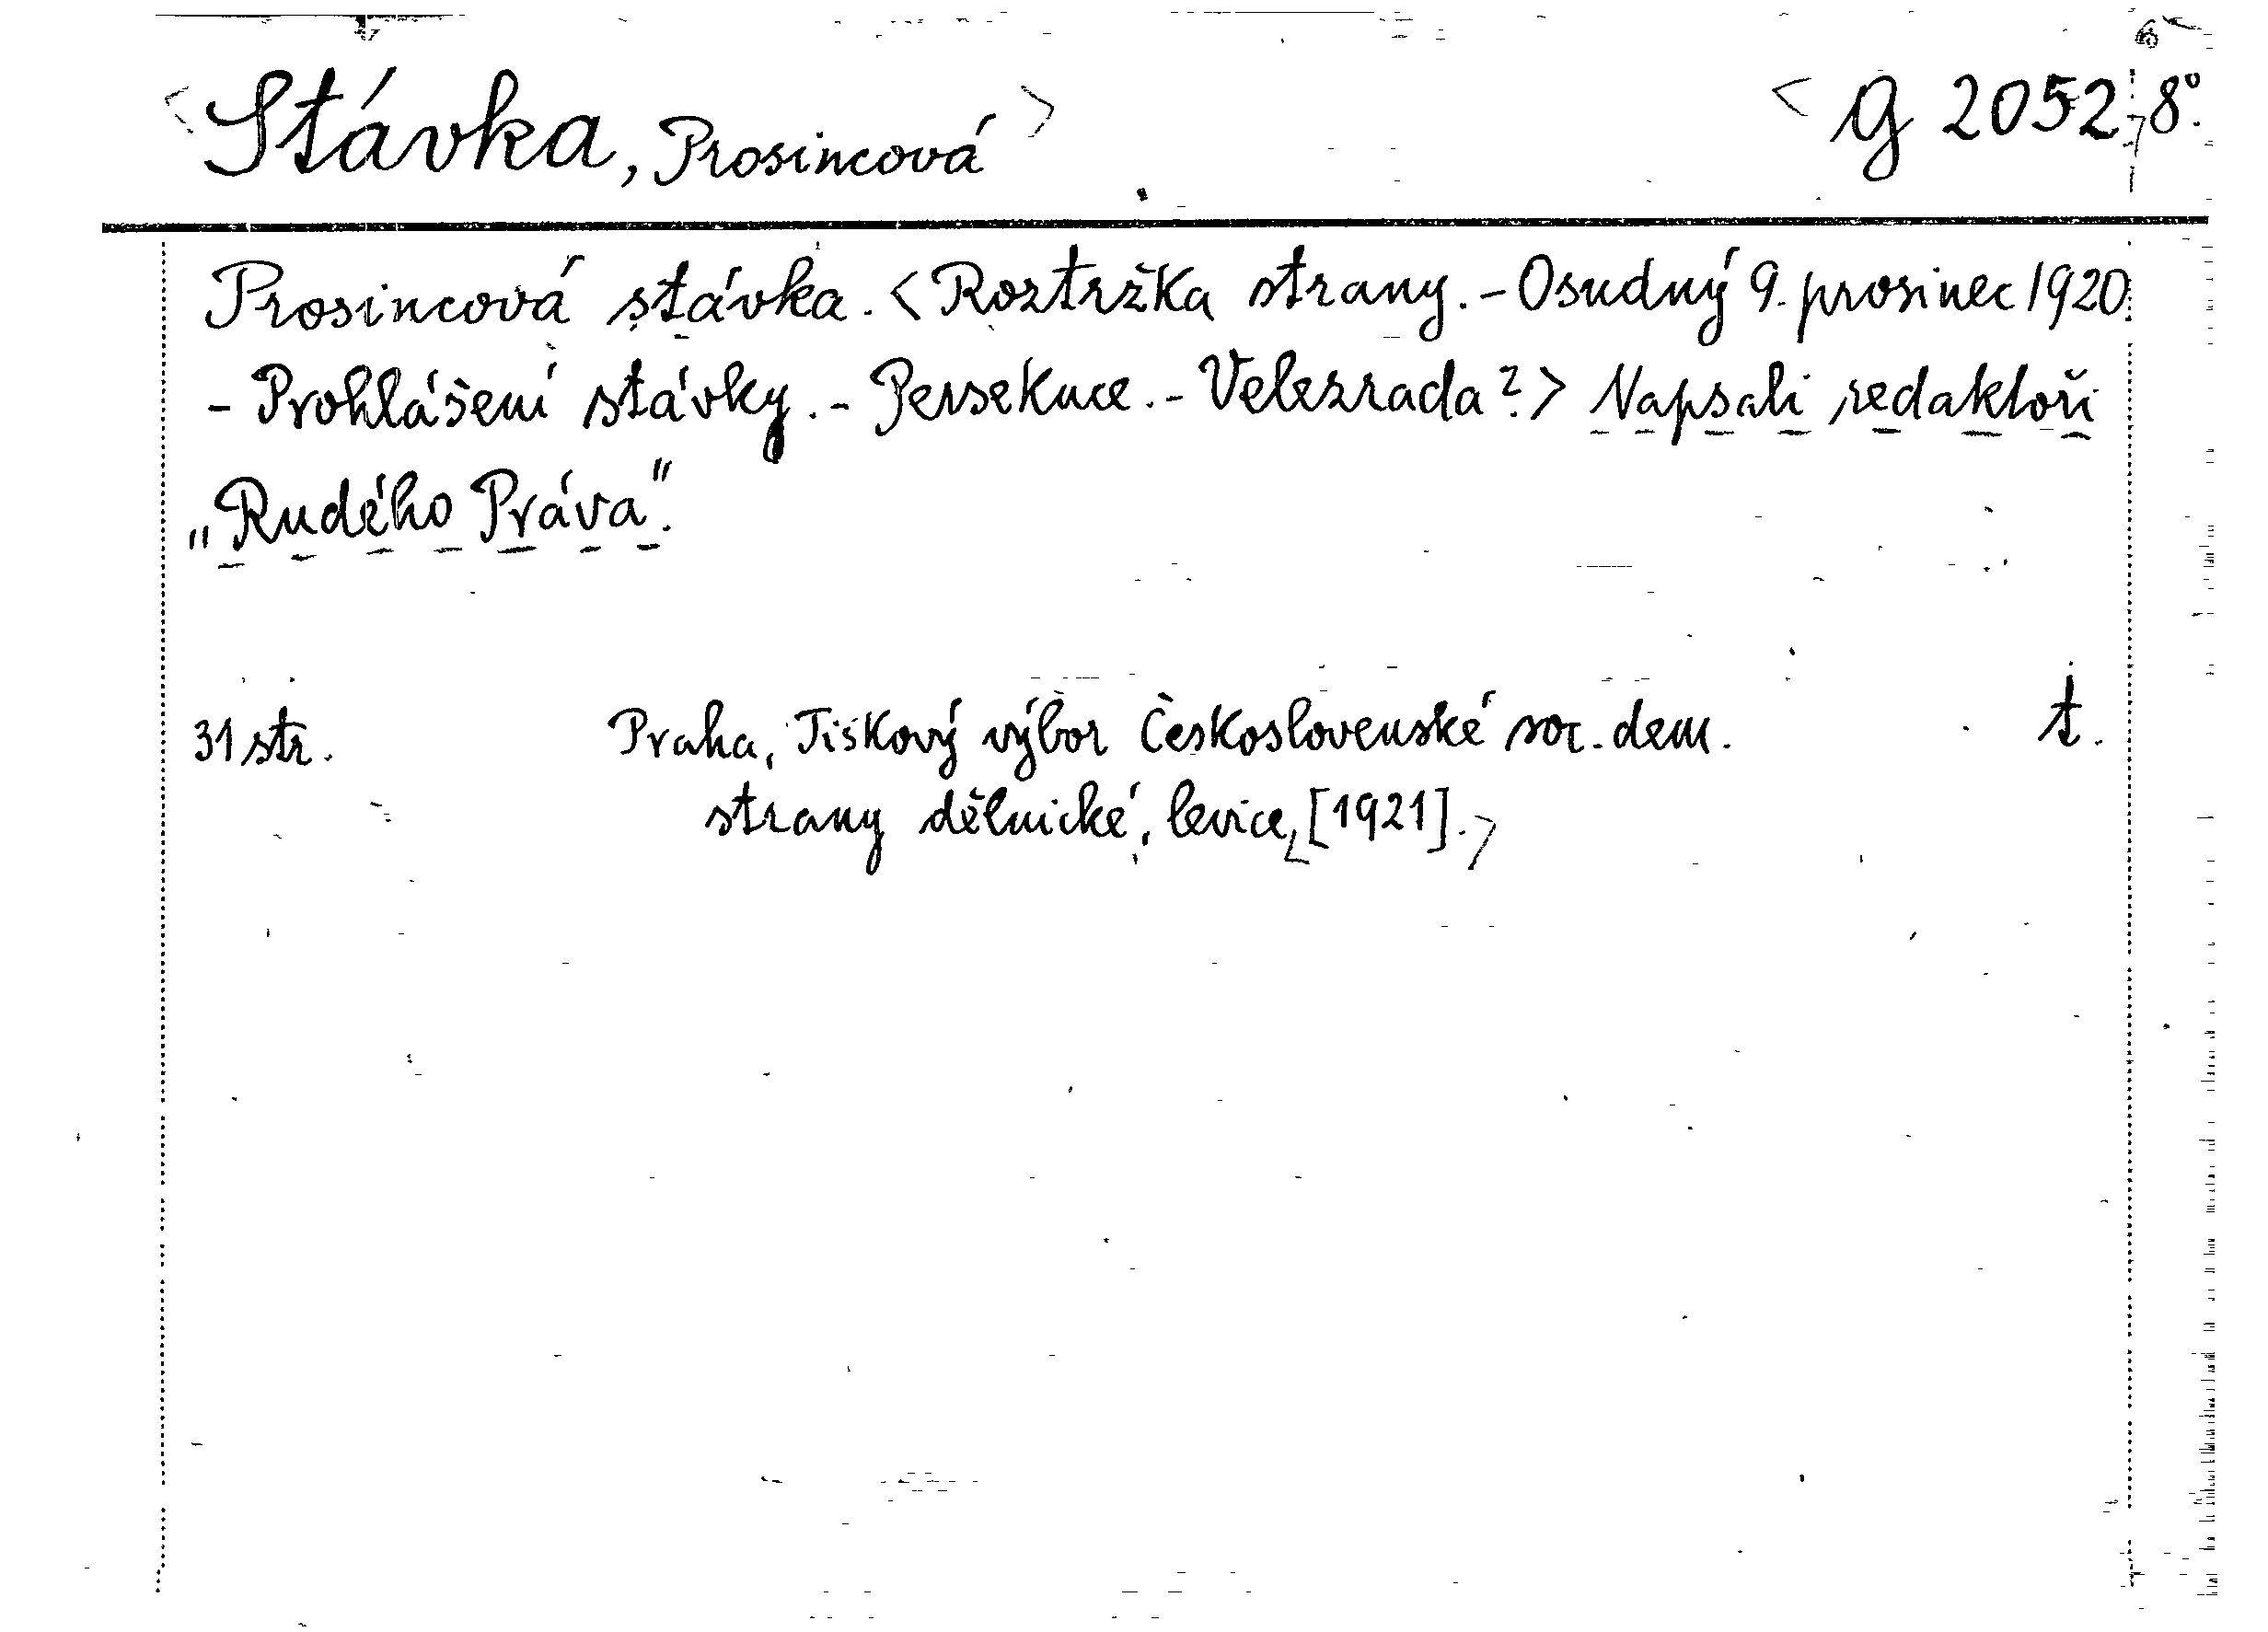 <Stávka, Prosincová> <G 2052, 8°.
Prosincová stávka. <Roztržka strany. - Osudný 9. prosinec 1920.
- Prohlášení stávky. - Persekuce. - Velezrada?> Napsali redaktoři
„Rudého Práva".
31 str. Praha, Tiskový výbor Československé soc. dem. t.
strany dělnické, levice, [1921].>